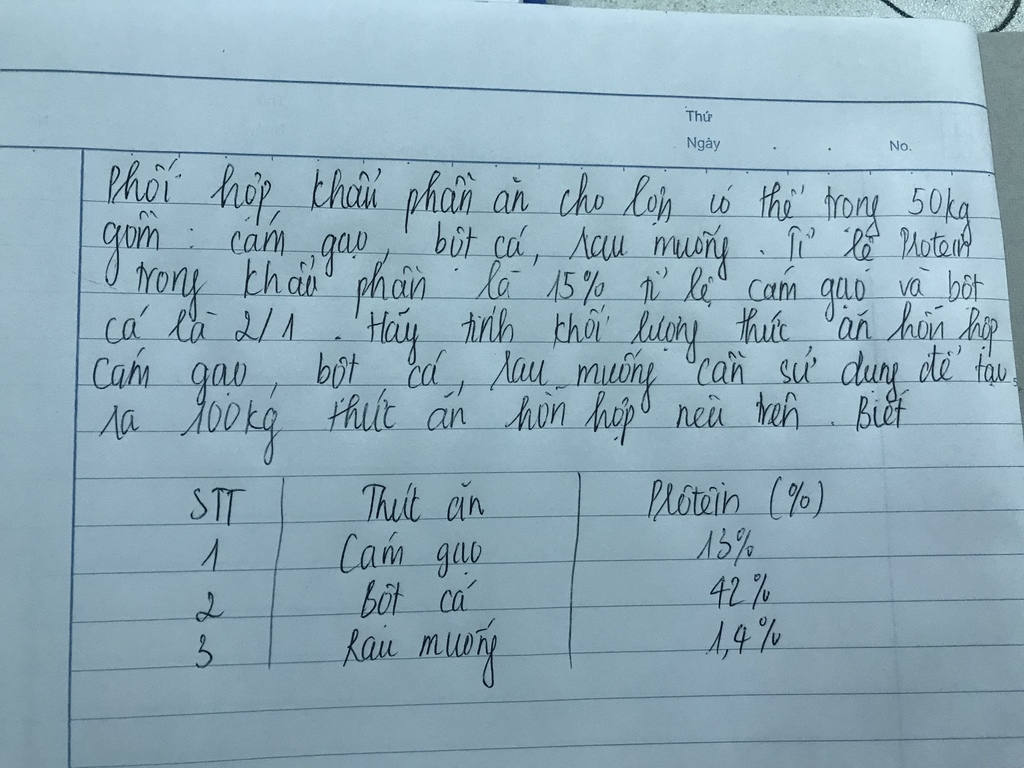 Thứ
Ngày . . No.
Phối hợp khẩu phần ăn cho lợn có thể trong 50kg
gồm : cám gạo, bột cá, rau muống. Tỉ lệ Protein
trong khẩu phần là 15% tỉ lệ cám gạo và bột
cá là 2/1. Hãy tính khối lượng thức ăn hỗn hợp
cám gạo, bột cá, rau muống cần sử dụng để tạo
ra 100kg thức ăn hỗn hợp nêu trên. Biết
STT Thức ăn Protein (%)
1 Cám gạo 13%
2 Bột cá 42%
3 Rau muống 1,4%